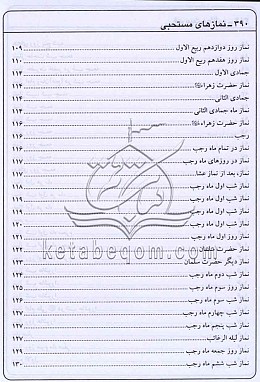 ۳۹۰ - نمازهای مستحبی
نماز روز دوازدهم ربیع الاول ۱۰۹
نماز روز هفدهم ربیع الاول ۱۱۰
جمادی الاول ۱۱۴
نماز حضرت زهراء ۱۱۴
جمادی الثانی ۱۱۴
نماز ماه جمادی الثانی ۱۱۴
نماز حضرت زهراء ۱۱۶
رجب ۱۱۶
نماز در تمام ماه رجب ۱۱۶
نماز در روزهای ماه رجب ۱۱۷
نماز، بعد از نماز عشا ۱۱۷
نماز شب اول ماه رجب ۱۱۸
نماز شب اول ماه رجب ۱۱۹
نماز شب اول ماه رجب ۱۱۹
نماز شب اول ماه رجب ۱۲۰
نماز روز اول ماه رجب ۱۲۱
نماز حضرت سلمان
نماز دیگر حضرت سلمان ۱۲۳
نماز شب دوم ماه رجب ۱۲۴
نماز روز سوم ماه رجب ۱۲۵
نماز شب سوم ماه رجب ۱۲۶
نماز شب چهارم ماه رجب ۱۲۷
نماز شب پنجم ماه رجب ۱۲۷
نماز لیله الرغائب ۱۲۷
نماز روز جمعه ماه رجب ۱۲۹
نماز شب ششم ماه رجب ۱۳۰
ketabeqom.com